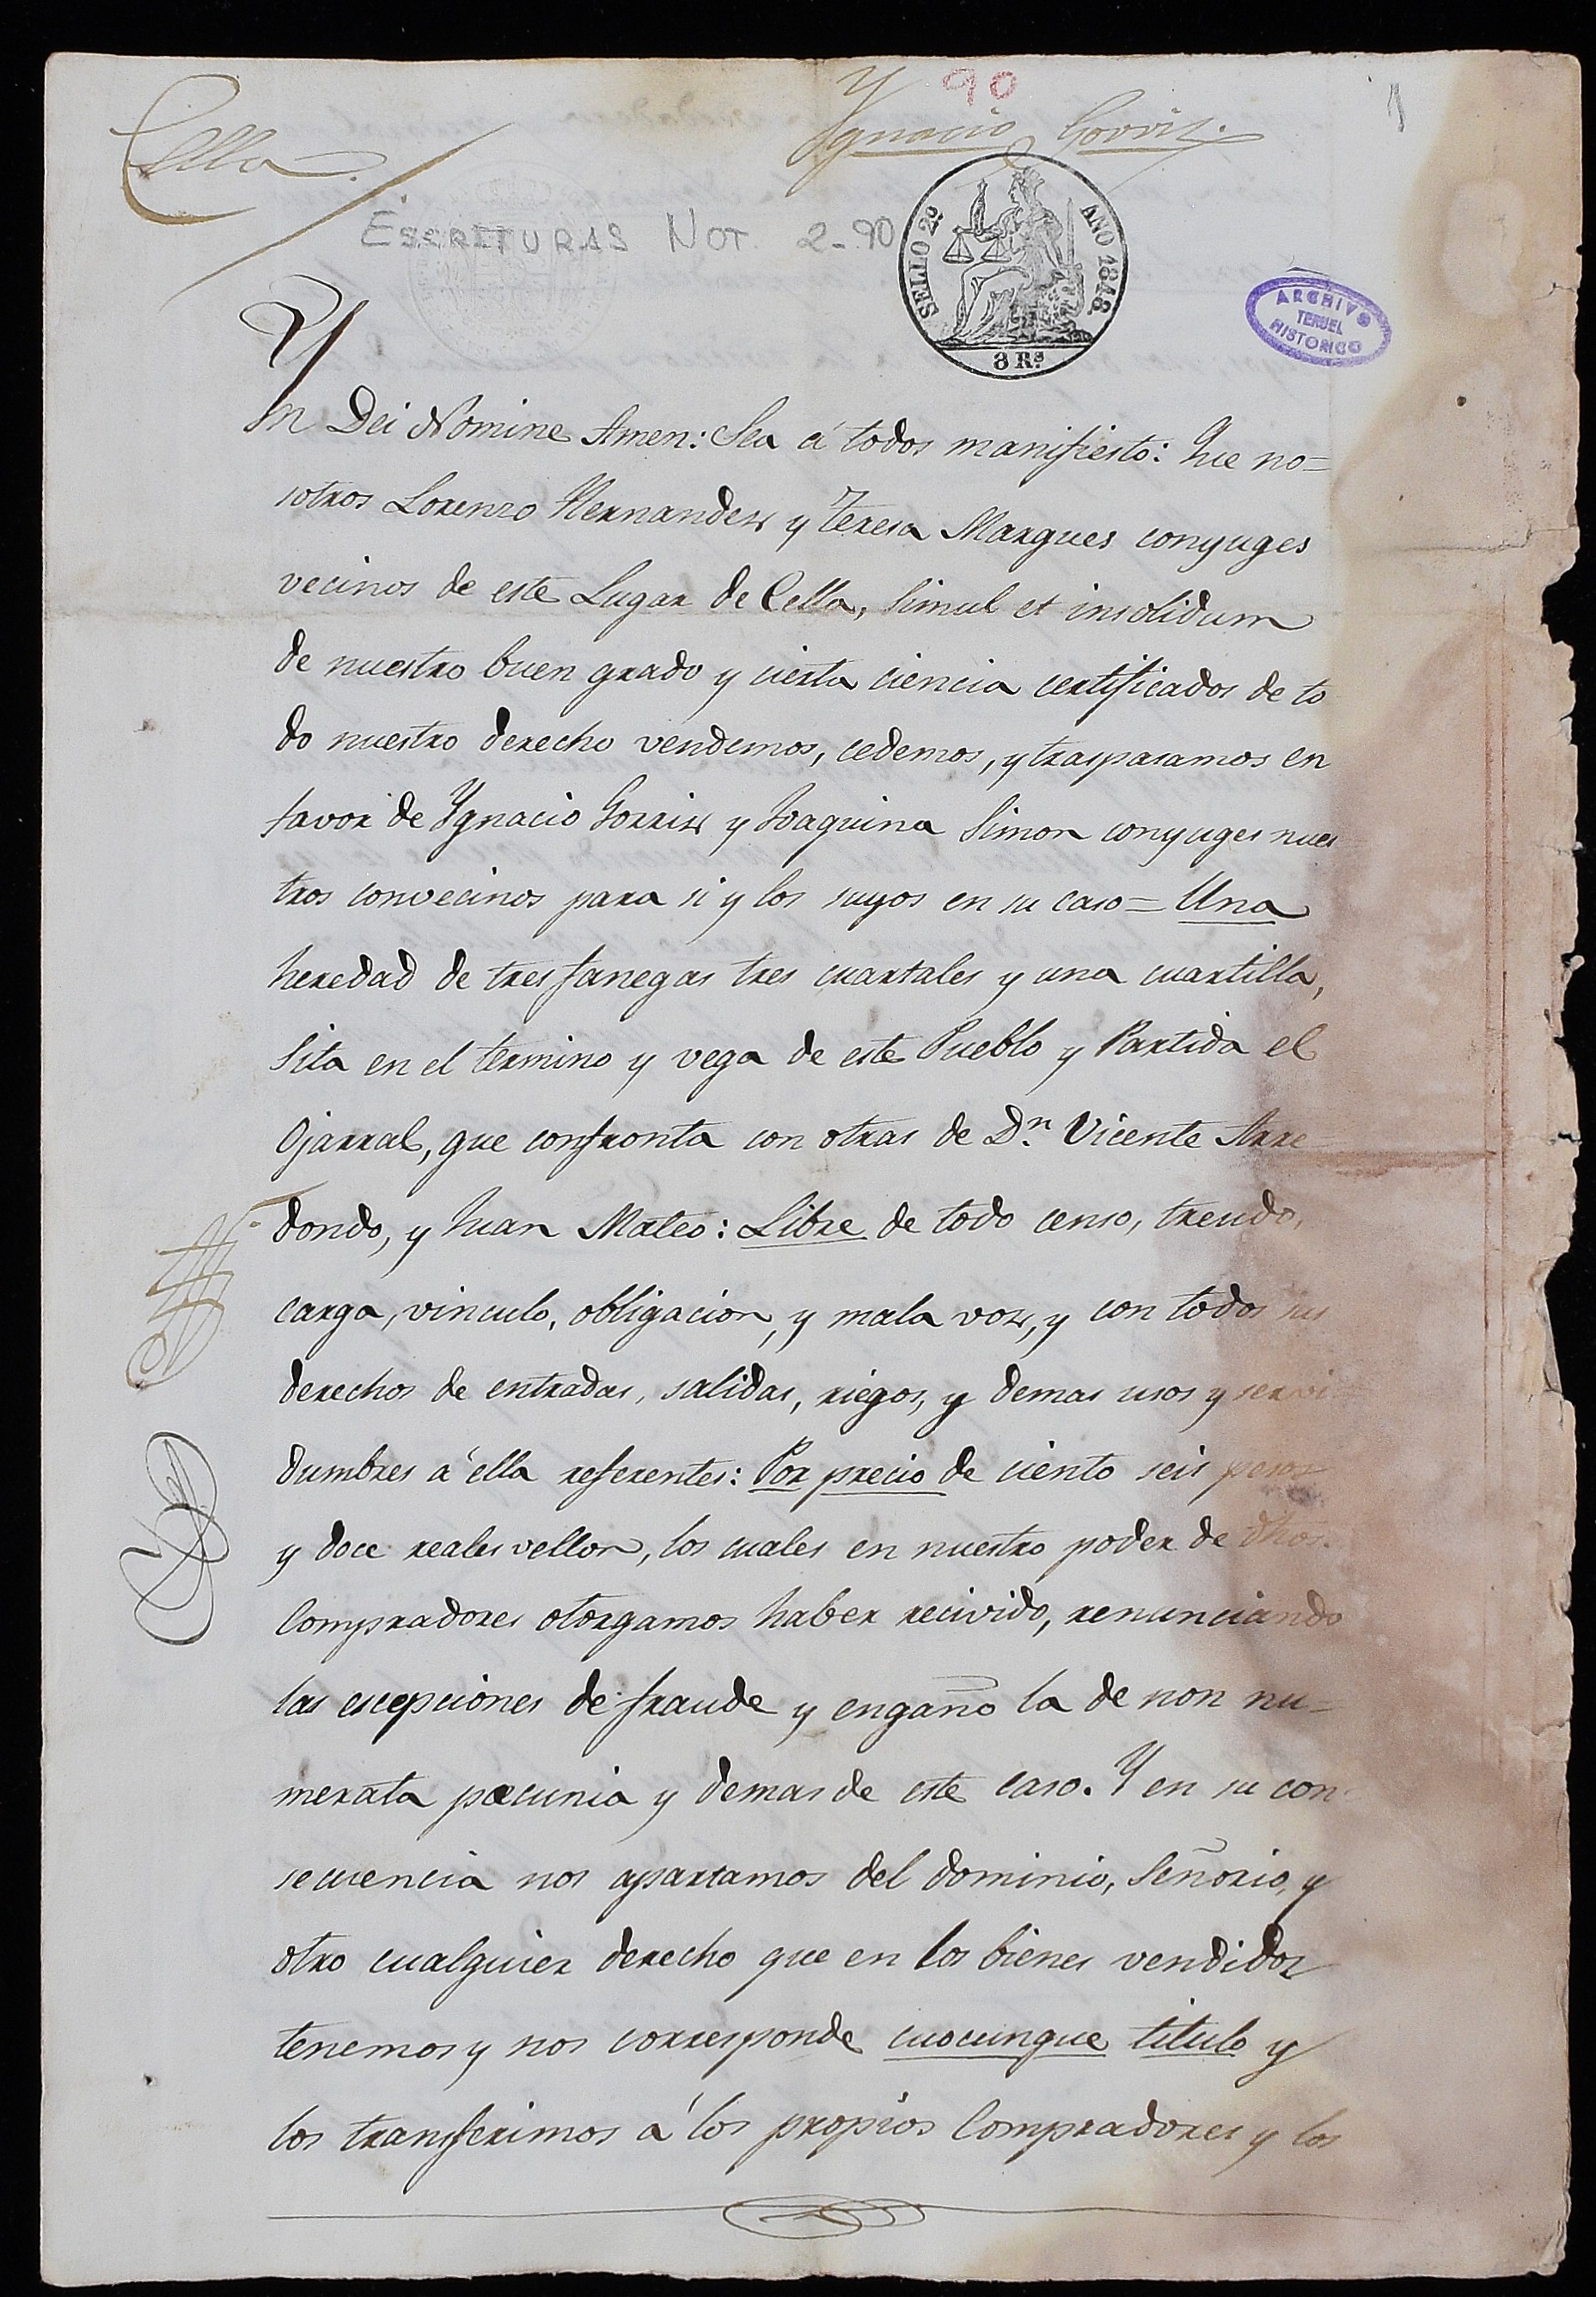 90
1
Cella.
Ygnacio Gorriz.
ESCRITURAS NOT. 2-90
SELLO 2º AÑO 1848
8 Rs
ARCHIVO
TERUEL
HISTORICO
Yn Dei Nomine Amen: Sea á todos manifiesto: Que no=
sotros Lorenzo Hernandez y Teresa Marques conyuges
vecinos de este Lugar de Cella, simul et insolidum
de nuestro buen grado y cierta ciencia certificados de to
do nuestro derecho vendemos, cedemos, y traspasamos en
favor de Ygnacio Gorriz y Joaquina Simon conyuges nues
tros convecinos para si y los suyos en su caso = Una
heredad de tres fanegas tres cuartales y una cuartilla,
sita en el termino y vega de este Pueblo y Partida el
Ojarral, que confronta con otras de Dn. Vicente Arre
dondo, y Juan Mateo: Libre de todo censo, treudo,
carga, vinculo, obligacion, y mala voz, y con todos sus
derechos de entradas, salidas, riegos, y demas usos y servi
dumbres á ella referentes: Por precio de ciento seis pesos
y doce reales vellon, los cuales en nuestro poder de dhos.
Compradores otorgamos haber recivido, renunciando
las escepciones de fraude y engaño la de non nu=
merata pecunia y demas de este caso. Y en su con
secuencia nos apartamos del dominio, Señorio, y
otro cualquier derecho que en los bienes vendidos
tenemos y nos corresponde cuocunque titulo y
los transferimos á los propios Compradores y los